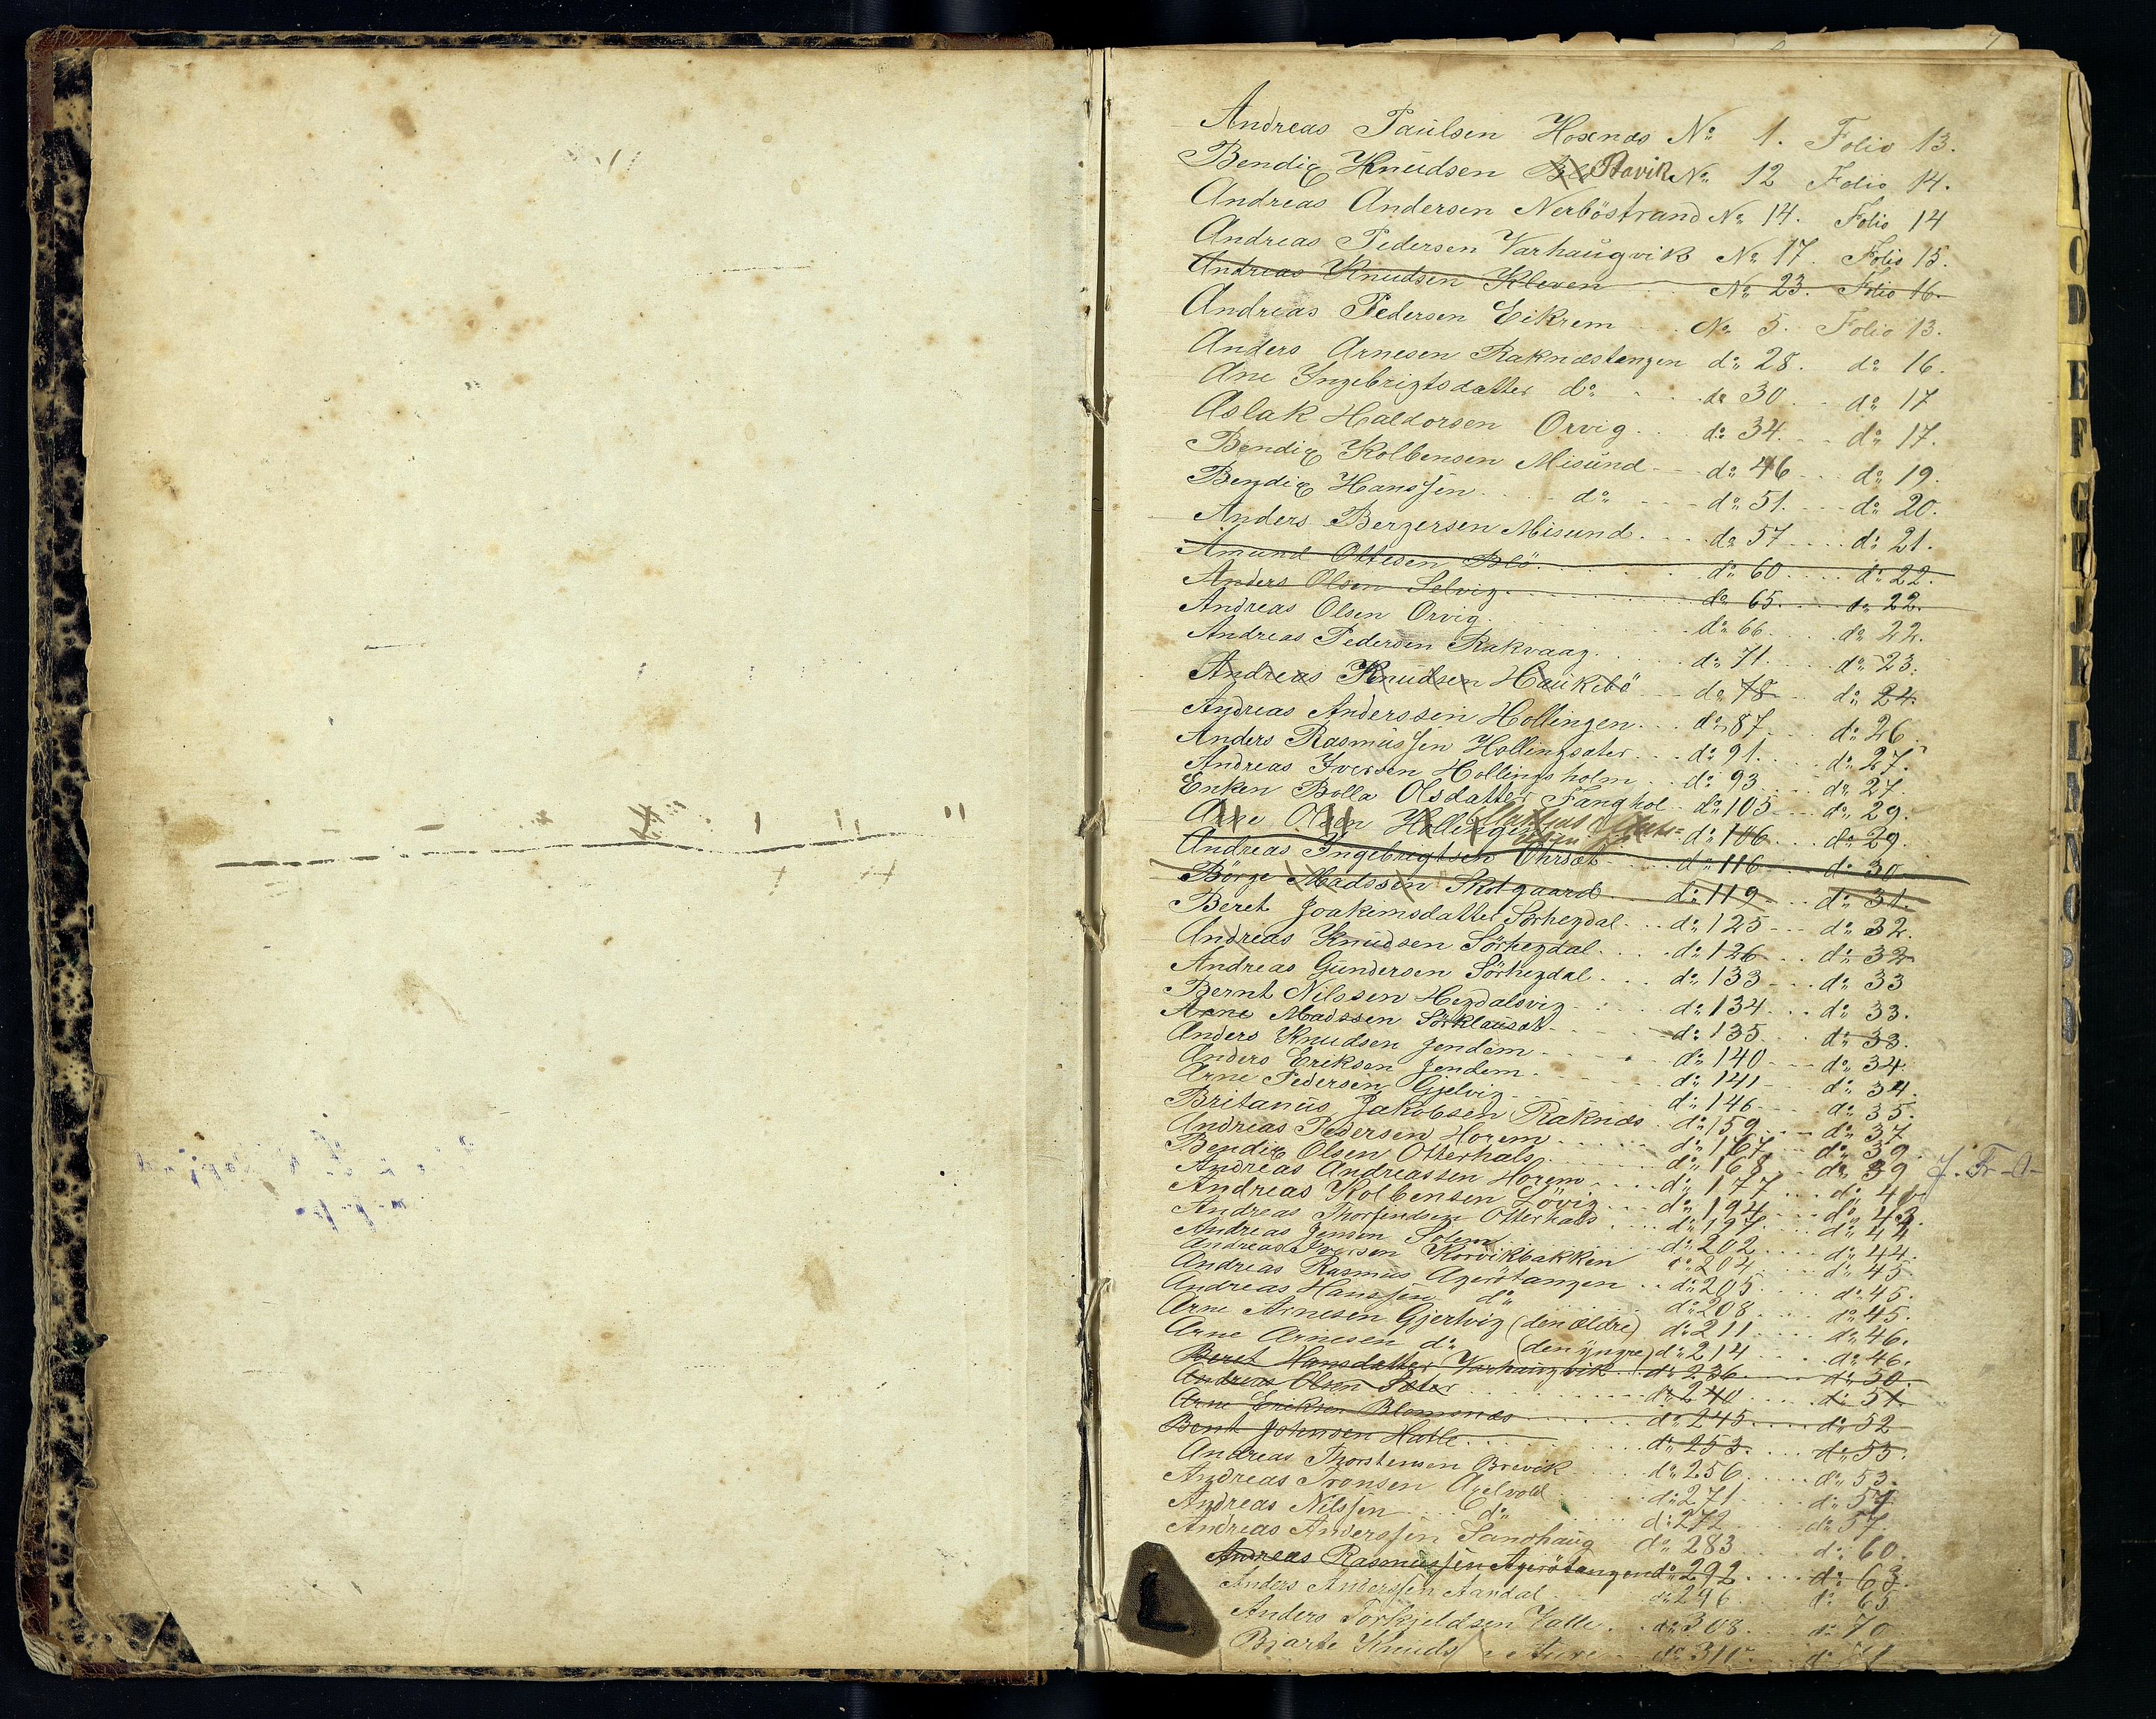 Andreas Paulsen Hoxnæs No 1. Folio 13.
Bendix Knudsen Ravik No 12 Folio 14.
Andreas Andersen Nerböstrand No 14. Folio 14
Andreas Pedersen Varhaugvik No 17. Folio 15.
Andreas Knudsen Kleven No 23. Folio 16.
Andreas Pedersen Eikrem No 5. Folio 13.
Anders Arnesen Raknæstangen do 28. do 16.
Ane Ingebrigtsdatter do do 30 do 17
Aslak Haldorsen Orvig do 34 do 17.
Bendix Kolbensen Misund do 46 do 19.
Bendix Hanssen do do 51. do 20.
Anders Bergersen Misund do 57 do 21.
Amund Ottesen Blö do 60 do 22.
Anders Olsen Selvig do 65. do 22.
Andreas Olsen Orvig do 66 do 22.
Andreas Pedersen Rakvaag do 71. do 23.
Andreas Knudsen Haukebö do 78 do 24.
Andreas Anderssen Hollingen do 87 do 26.
Anders Rasmussen Hollingsæter do 91. do 27.
Andreas Iversen Hollingsholm do 93 do 27.
Enken Bolla Olsdatter Fanghol do 105 do 29.
Arne Olsen Hollingen do 106 do 29.
Andreas Ingebrigtsen Ohrsæt do 116 do 30
Börge Madssen Skotgaard do 119 do 31.
Beret Joakimsdatter Sörhegdal do 125 do 32.
Andreas Knudsen Sörhegdal do 126 do 32
Andreas Gundersen Sörhegdal do 133 do 33
Bernt Nilssen Hegdalsvig do 134 do 33.
Arne Madssen Sörklauset do 135 do 33.
Anders Knudsen Jendem do 140 do 34
Anders Eriksen Jendem do 141 do 34.
Arne Pedersen Gjelvig do 146 do 35.
Britanus Jakobsen Raknæs do 159 do 37
Andreas Pedersen Horem do 167 do 39
Bendix Olsen Otterhals do 168 do 39
Andreas Andreassen Horem do 177 do 40
Andreas Kolbensen Lövig do 194 do 43.
Andreas Thorfindsen Otterhals do 197 do 44
Andreas Jensen Solem do 202 do 44.
Andreas Iversen Korvikbakken do 204 do 45
Andreas Rasmus Agerötangen do 205 do 45.
Andreas Hanssen do do 208 do 45.
Arne Arnesen Gjertvig (den ældre) do 211 do 46.
Arne Arnesen do (den yngre) do 214 do 46.
Beret Hansdatter Varhaugvik do 236 do 50.
Andreas Olsen Sæter do 240 do 51.
Arne Eriksen Blomsnæs do 245 do 52
Bent Johnsen Hatle do 253 do 53.
Andreas Thorstensen Brevik do 256 do 53.
Andreas Tronsen Agelvold do 271 do 57
Andreas Nilssen do do 272 do 57
Andreas Anderssen Sandhaug do 283 do 60.
Andreas Rasmussen Agerötangen do 292 do 63.
Anders Anderssen Aandal do 296 do 65
Anders Torkjeldsen Valle do 308 do 70
Bjarte Knuds Aure do 311 do 71
D
E
F
G